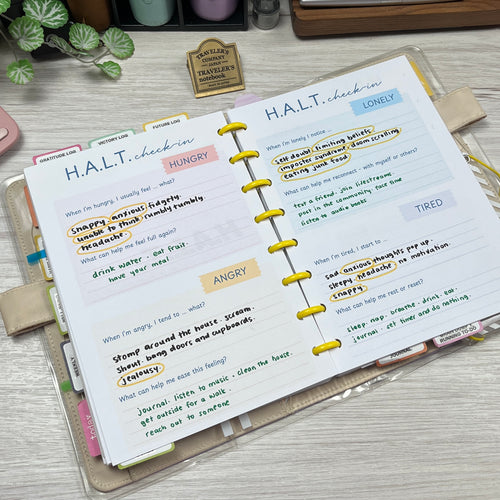 TRAVELER'S
COMPANY
JAPAN
TRAVELER'S
notebook
GRATITUDE LOG
VICTORY LOG
FUTURE LOG
H.A.L.T. check-in
HUNGRY
When I'm hungry, I usually feel ... what?
snappy. anxious. fidgety.
unable to think. rumbly tumbly.
headache.
What can help me feel full again?
drink water. eat fruit.
have your meal.
ANGRY
When I'm angry, I tend to ... what?
stomp around the house. scream.
shout. bang doors and cupboards.
jealousy.
What can help me ease this feeling?
journal. listen to music. clean the house.
get outside for a walk.
reach out to someone
April
H.A.L.T. check-in
LONELY
When I'm lonely, I notice ...
self doubt. limiting beliefs.
imposter syndrome. doom scrolling.
eating junk food.
What can help me reconnect - with myself or others?
text a friend. join livestreams.
post in the community. face time
listen to audio books
TIRED
When I'm tired, I start to ...
sad. anxious thoughts pop up.
sleepy. headache. no motivation.
snappy.
What can help me rest or reset?
sleep. nap. breathe. drink. eat.
journal. set timer and do nothing.
JOURNALING
RUNNING TO-DO